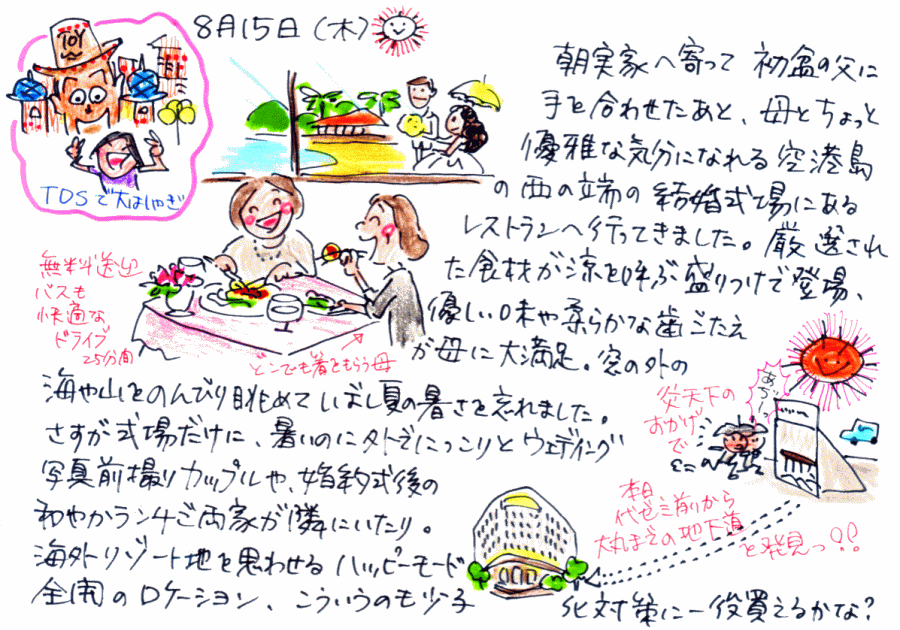 8月15日(木)
TOY
TDSで大はしゃぎ
朝実家へ寄って 初盆の父に
手を合わせたあと、母とちょっと
優雅な気分になれる空港島
の西の端の結婚式場にある
レストランへ行ってきました。厳選され
た食材が涼を呼ぶ盛りつけで登場、
優しい味や柔らかな歯ごたえ
が母に大満足。窓の外の
海や山をのんびり眺めてしばし夏の暑さを忘れました。
さすが式場だけに、暑いのに外でにっこりとウェディング
写真前撮りカップルや、婚約式後の
和やかランチご両家が隣にいたり。
海外リゾート地を思わせるハッピーモード
全開のロケーション、こういうのも少子
化対策に一役買えるかな?
無料送迎
バスも
快適な
ドライブ
25分間
どこでも箸をもらう母
あぢーっ
炎天下の
おかげ
で
本日
代ゼミ前から
大丸までの地下道
を発見っ!!